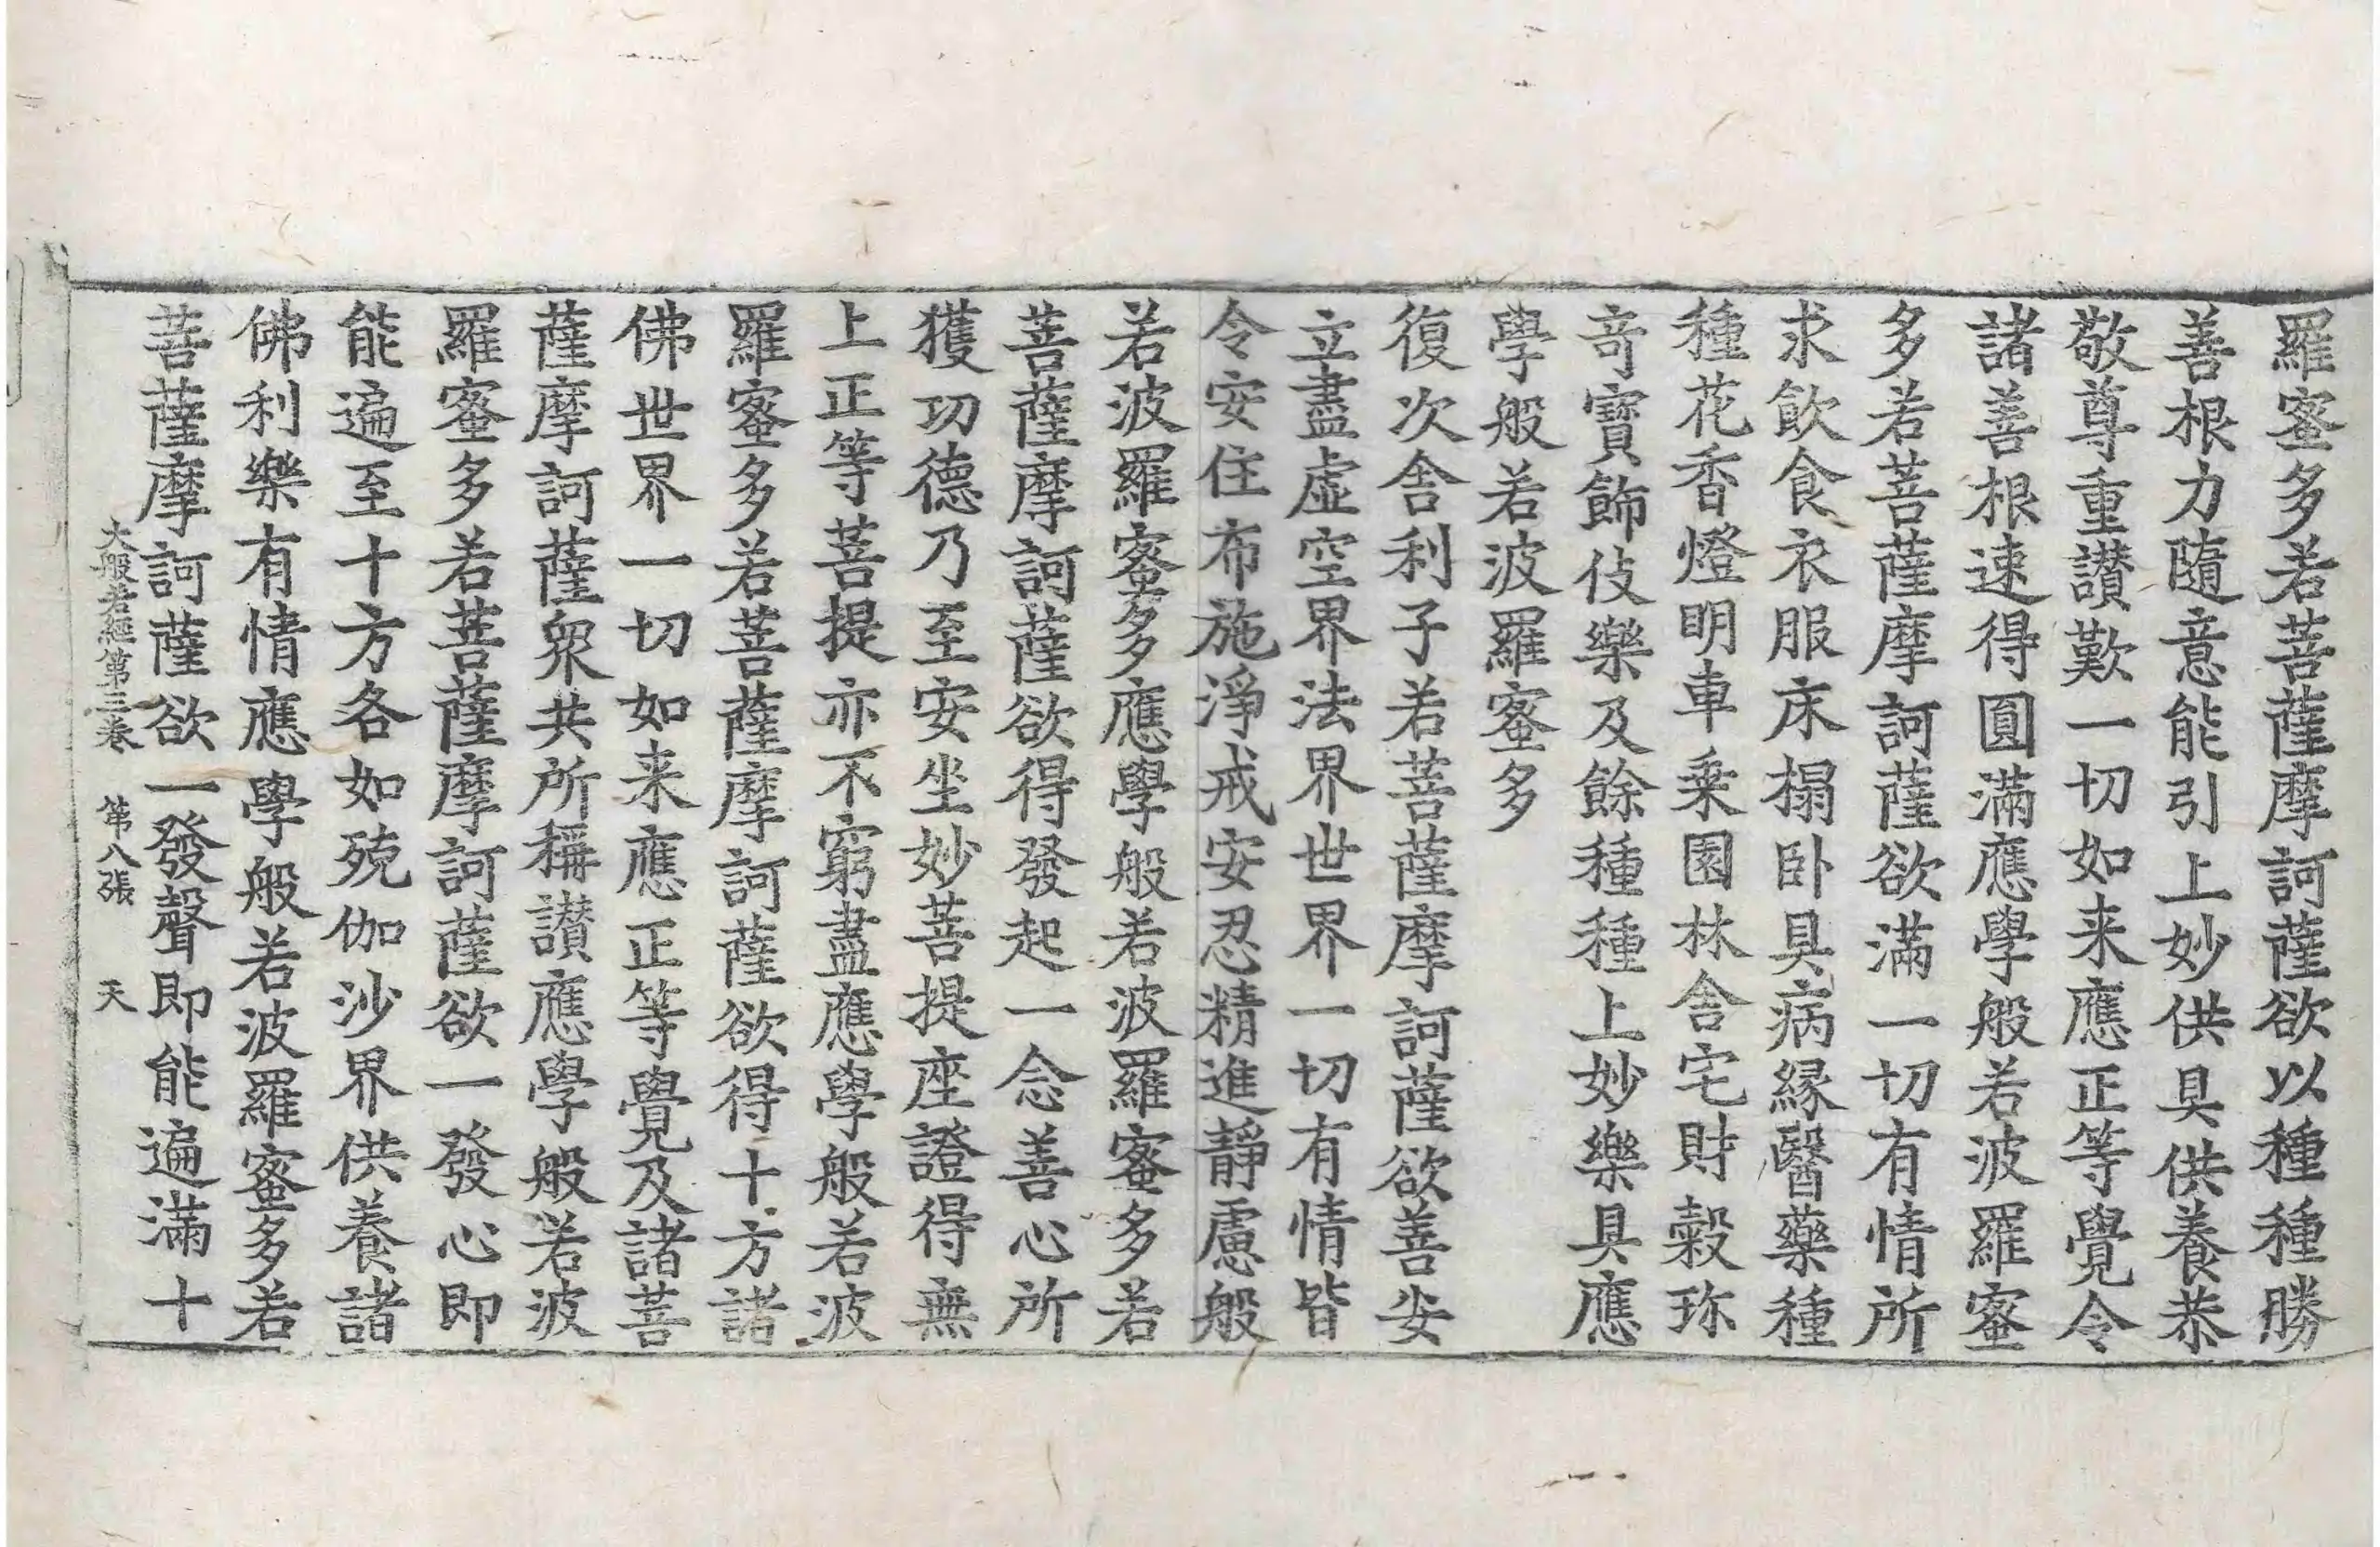 羅蜜多若菩薩摩訶薩欲以種種勝
善根力隨意能引上妙供具供養恭
敬尊重讃歎一切如来應正等覺令
諸善根速得圓滿應學般若波羅蜜
多若菩薩摩訶薩欲滿一切有情所
求飲食衣服床榻卧具病縁醫藥種
種花香燈明車乗園林舎宅財穀珎
竒寶飾伎樂及餘種種上妙樂具應
學般若波羅蜜多
復次舎利子若菩薩摩訶薩欲善安
立盡虛空界法界世界一切有情皆
令安住布施淨戒安忍精進靜慮般
若波羅蜜多應學般若波羅蜜多若
菩薩摩訶薩欲得發起一念善心所
獲功德乃至安坐妙菩提座證得無
上正等菩提亦不窮盡應學般若波
羅蜜多若菩薩摩訶薩欲得十方諸
佛世界一切如来應正等覺及諸菩
薩摩訶薩衆共所稱讃應學般若波
羅蜜多若菩薩摩訶薩欲一發心即
能遍至十方各如殑伽沙界供養諸
佛利樂有情應學般若波羅蜜多若
菩薩摩訶薩欲一發聲即能遍滿十
大般若經第三卷 第八張 天